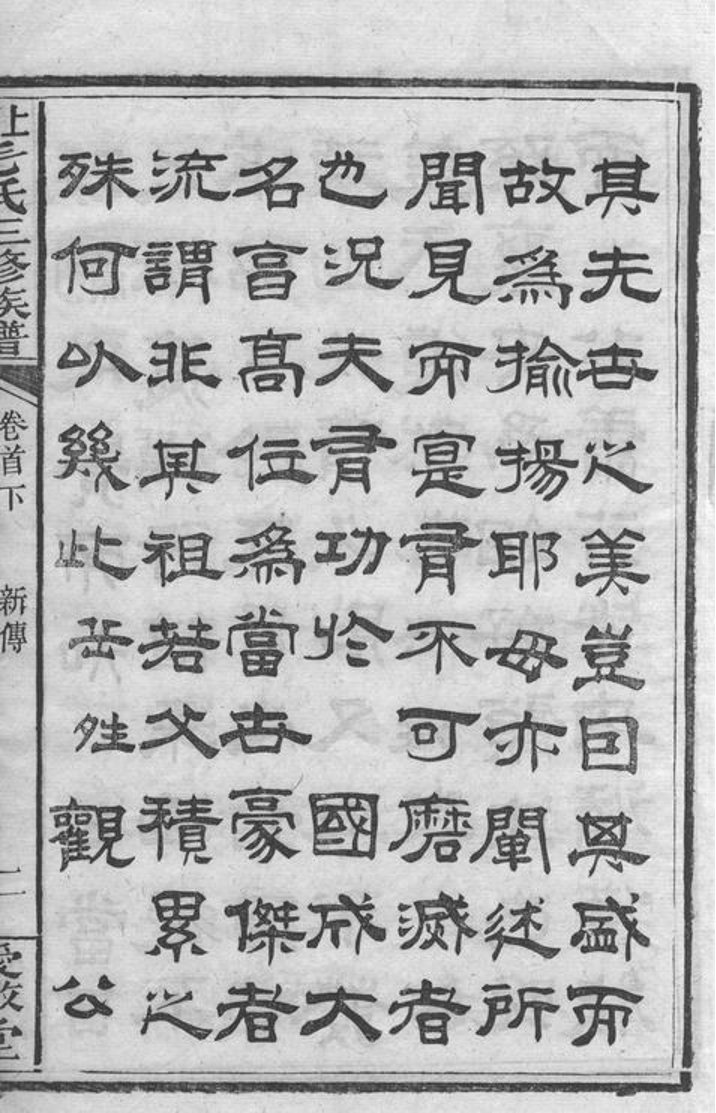 其先世之美豈因其盛而
故為揄揚耶毋亦闡述所
聞見而寔有不可磨滅者
也況夫有功於 國成大
名亯高位為當世豪傑者
流謂非其祖若父積累之
殊何以幾此 姓觀 公
毛氏三修族譜
卷首下
新傳
二
愛敬堂